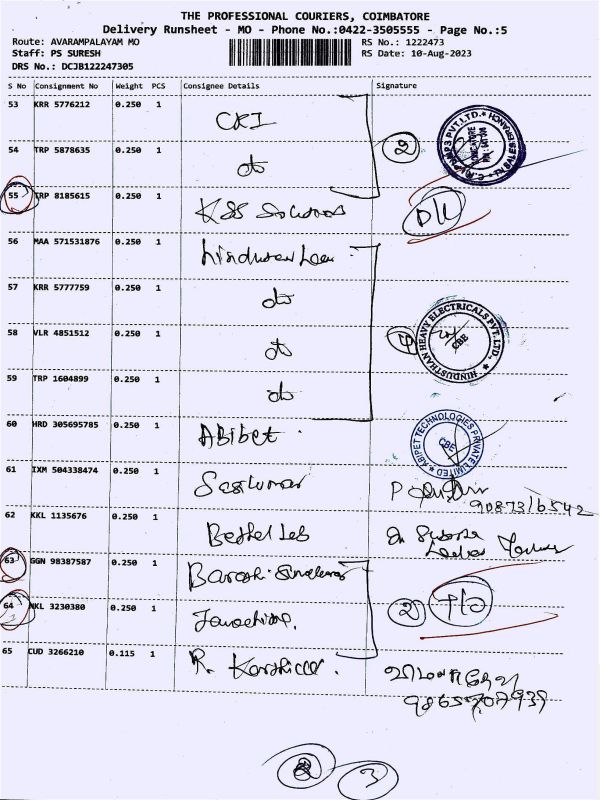 THE PROFESSIONAL COURIERS, COIMBATORE
Delivery Runsheet - MO - Phone No.:0422-3505555 - Page No.:5
Route: AVARAMPALAYAM MO RS No.: 1222473
Staff: PS SURESH RS Date: 10-Aug-2023
DRS No.: DCJB122247305
S No Consignment No Weight PCS Consignee Details Signature
53 KRR 5776212 0.250 1 CRI
54 TRP 5878635 0.250 1 do 2
55 TRP 8185615 0.250 1 KSS Solutions D/L
56 MAA 571531876 0.250 1 hindustan
57 KRR 5777759 0.250 1 do
58 VLR 4851512 0.250 1 do 4
HINDUSTHAN HEAVY ELECTRICALS PVT. LTD., CBE
59 TRP 1604899 0.250 1 do
60 HRD 305695785 0.250 1 Abibet
ABIPET TECHNOLOGIES PRIVATE LIMITED CBE
61 IXM 504338474 0.250 1 Sasikumar P
9087316542
62 KKL 1135676 0.250 1 Bethel Leb
63 GGN 98387587 0.250 1
64 NKL 3230380 0.250 1 2
65 CUD 3266210 0.115 1 R.
9865707939
3